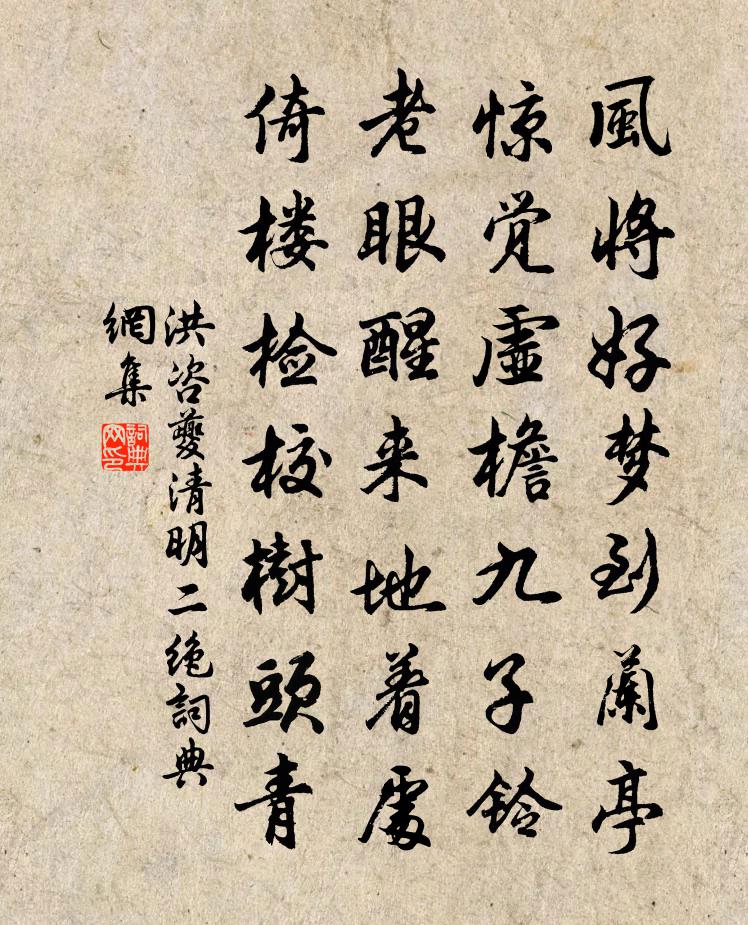 風將好梦到蘭亭
惊觉虛檐九子铃
老眼醒来地着處
倚楼检校樹頭青
洪咨夔清明二绝詞典
網集
詞典网印